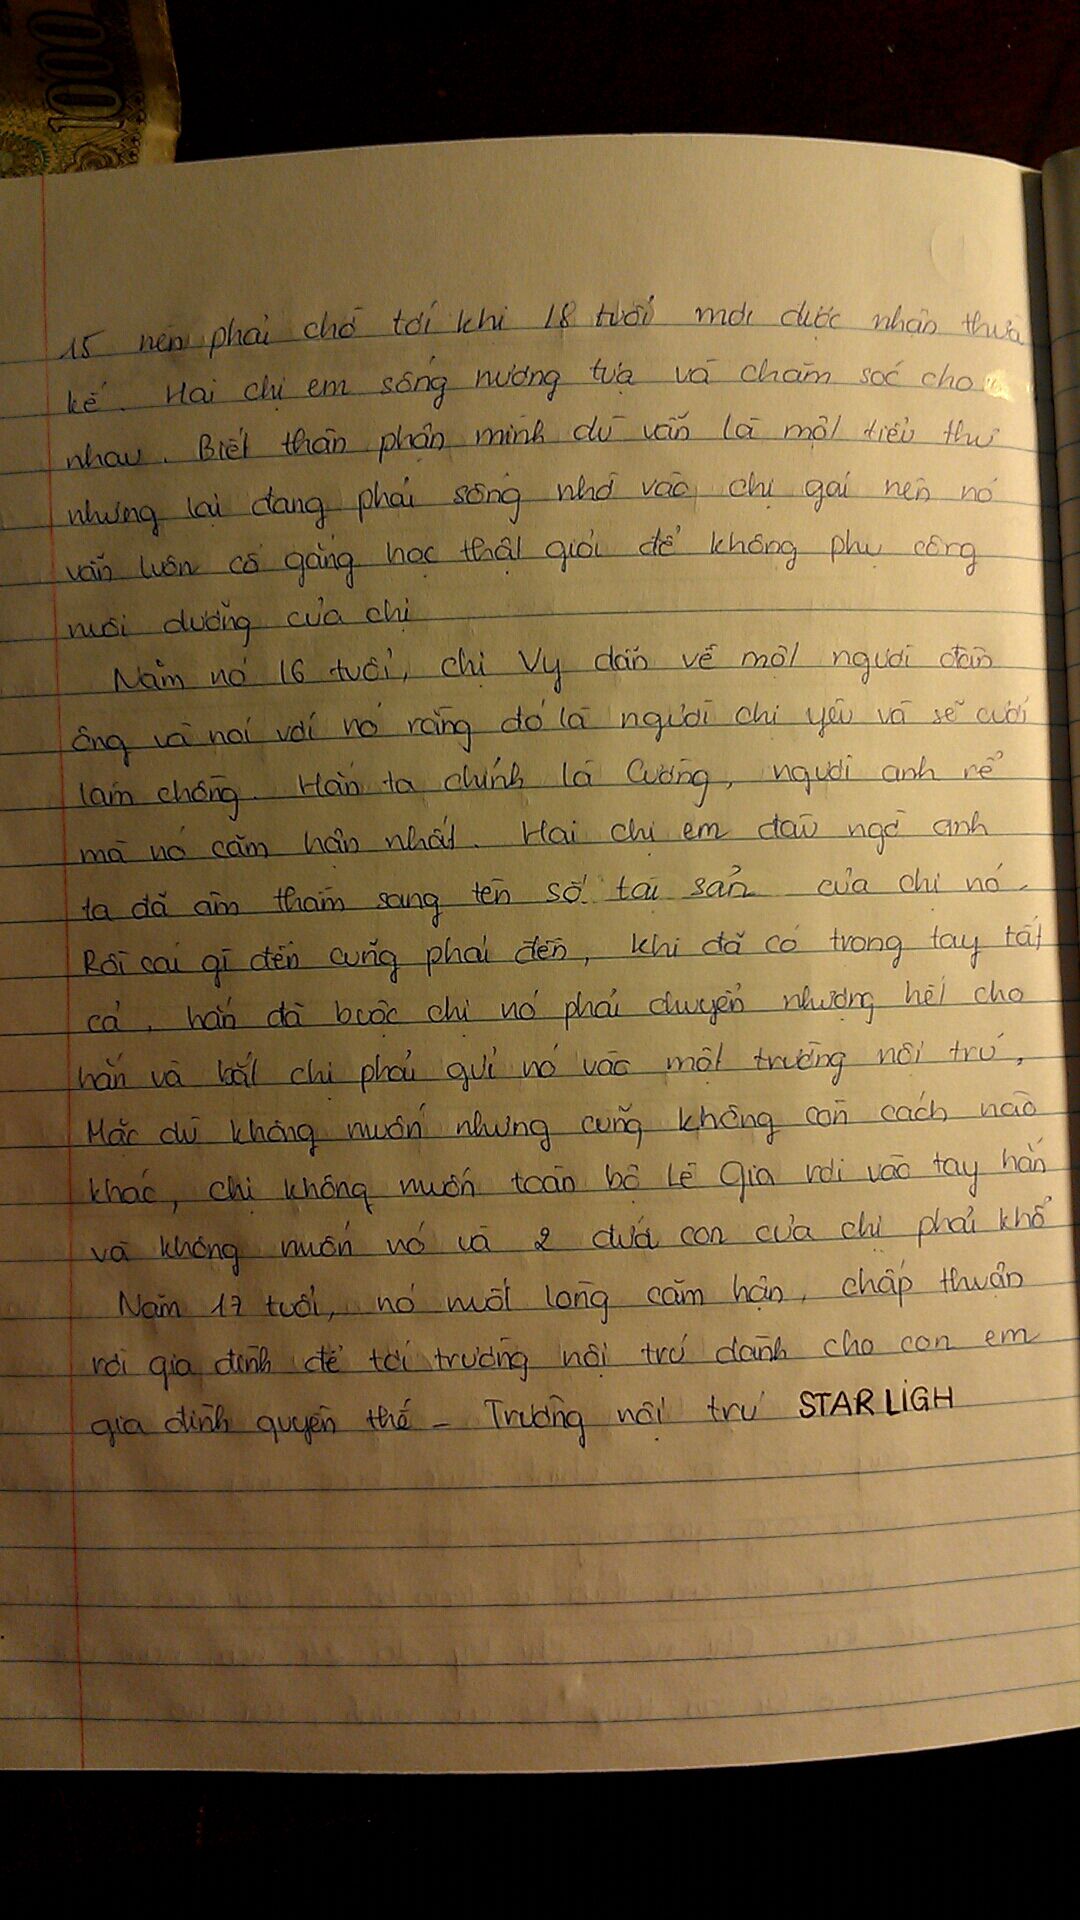 1000
15 nên phải chờ tới khi 18 tuổi mới được nhận thừa
kế. Hai chị em sống nương tựa và chăm sóc cho
nhau. Biết thân phận mình dù vẫn là một tiểu thư
nhưng lại đang phải sống nhờ vào chị gái nên nó
vẫn luôn cố gắng học thật giỏi để không phụ công
nuôi dưỡng của chị
Năm nó 16 tuổi, chị Vy dẫn về một người đàn
ông và nói với nó rằng đó là người chị yêu và sẽ cưới
làm chồng. Hắn ta chính là Cường, người anh rể
mà nó căm hận nhất. Hai chị em đâu ngờ anh
ta đã âm thầm sang tên số tài sản của chị nó.
Rồi cái gì đến cũng phải đến, khi đã có trong tay tất
cả, hắn đã buộc chị nó phải chuyển nhượng hết cho
hắn và bắt chị phải gửi nó vào một trường nội trú.
Mặc dù không muốn nhưng cũng không còn cách nào
khác, chị không muốn toàn bộ Lê Gia rơi vào tay hắn
và không muốn nó và 2 đứa con của chị phải khổ
Năm 17 tuổi, nó nuốt lòng căm hận, chấp thuận
rời gia đình để tới trường nội trú dành cho con em
gia đình quyền thế - Trường nội trú STARLIGH